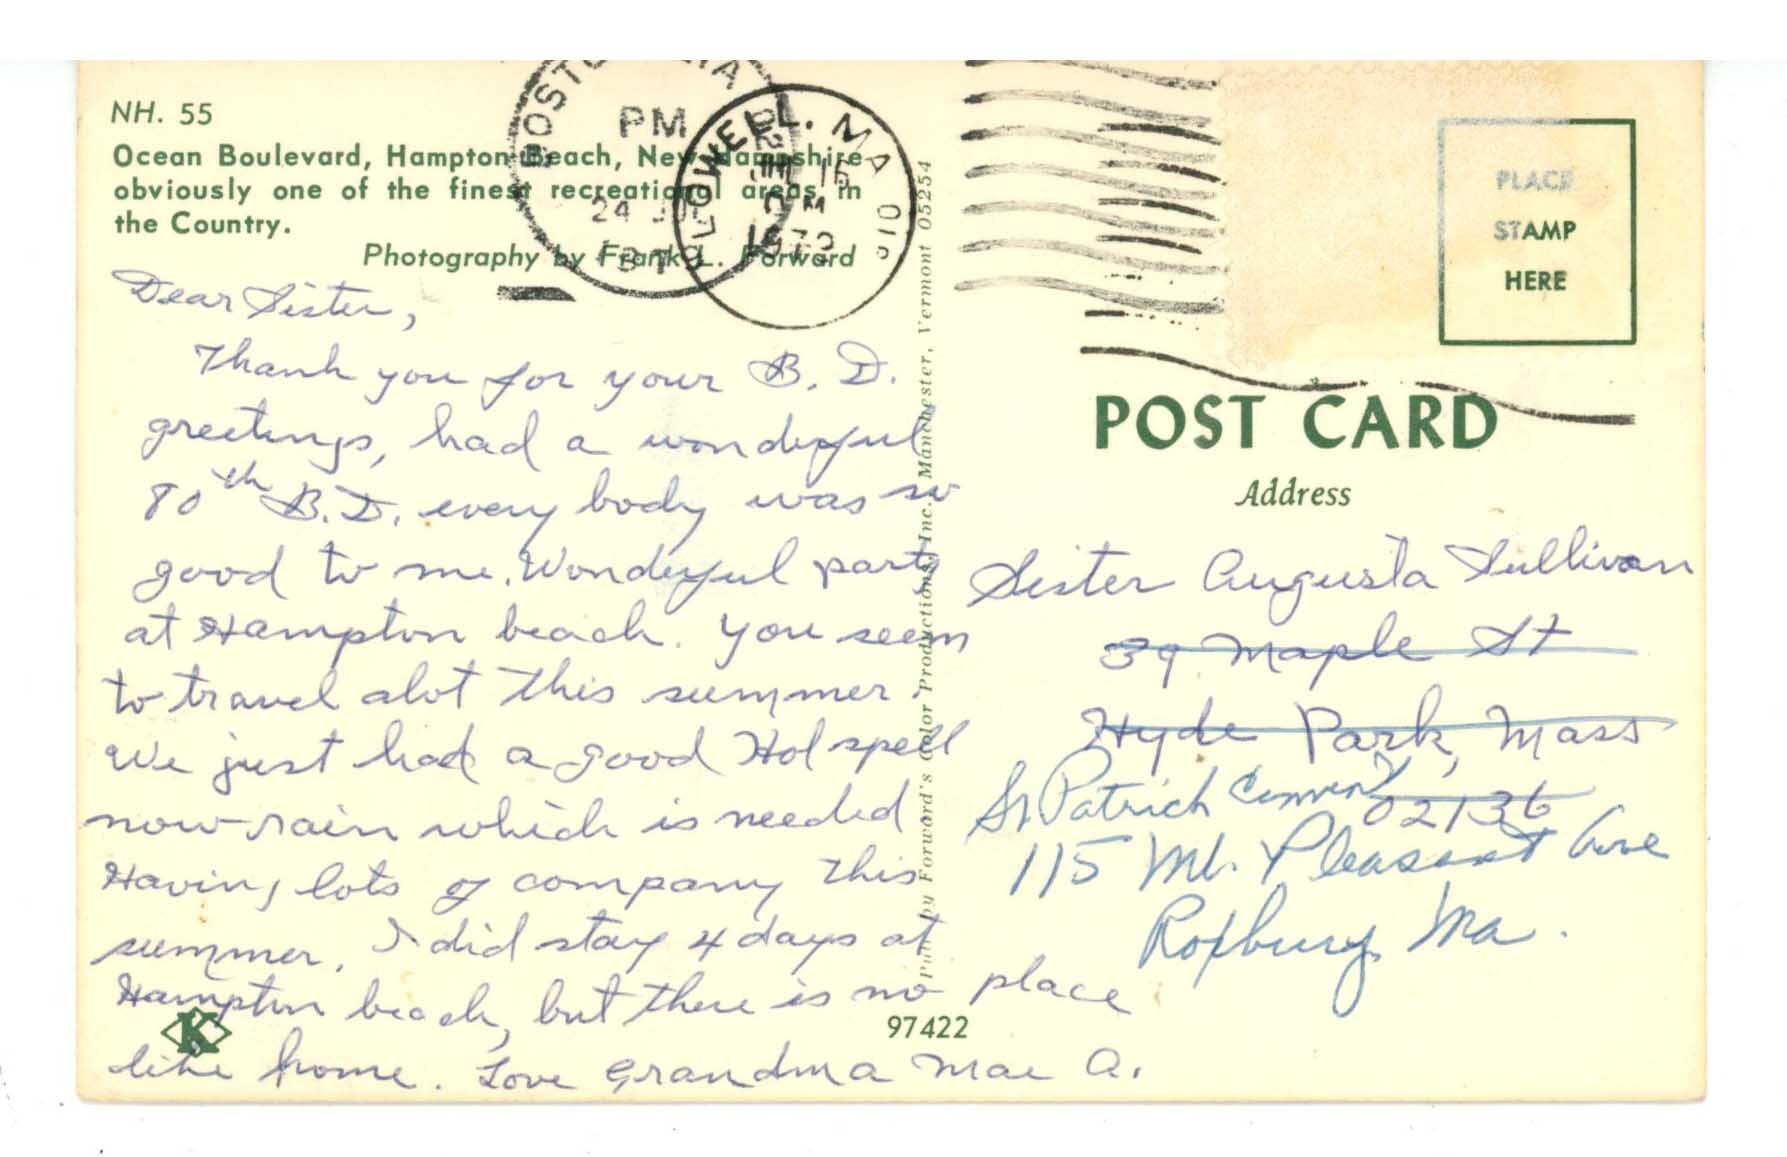 NH. 55
Ocean Boulevard, Hampton Beach, New Hampshire
obviously one of the finest recreational areas in
the Country.
Photography by Frank L. Forward
BOSTON MA
PM
24 JUL
LOWELL. MA 018
JUL 16
PM
1973
Dear Sister,
Thank you for your B. D.
greetings, had a wonderful
80th B.D. every body was so
good to me. Wonderful party
at Hampton beach. You seem
to travel alot this summer.
We just had a good Hot spell
now rain which is needed
Having lots of company this
summer. I did stay 4 days at
Hampton beach, but there is no place
like home. Love Grandma Mae A.
K
Pub. by Forward's Color Productions, Inc. Manchester, Vermont 05254
97422
PLACE
STAMP
HERE
POST CARD
Address
Sister Augusta Sullivan
39 Maple St
Hyde Park, Mass
02136
St Patrick Convent
115 Mt. Pleasant Ave
Roxbury, Ma.